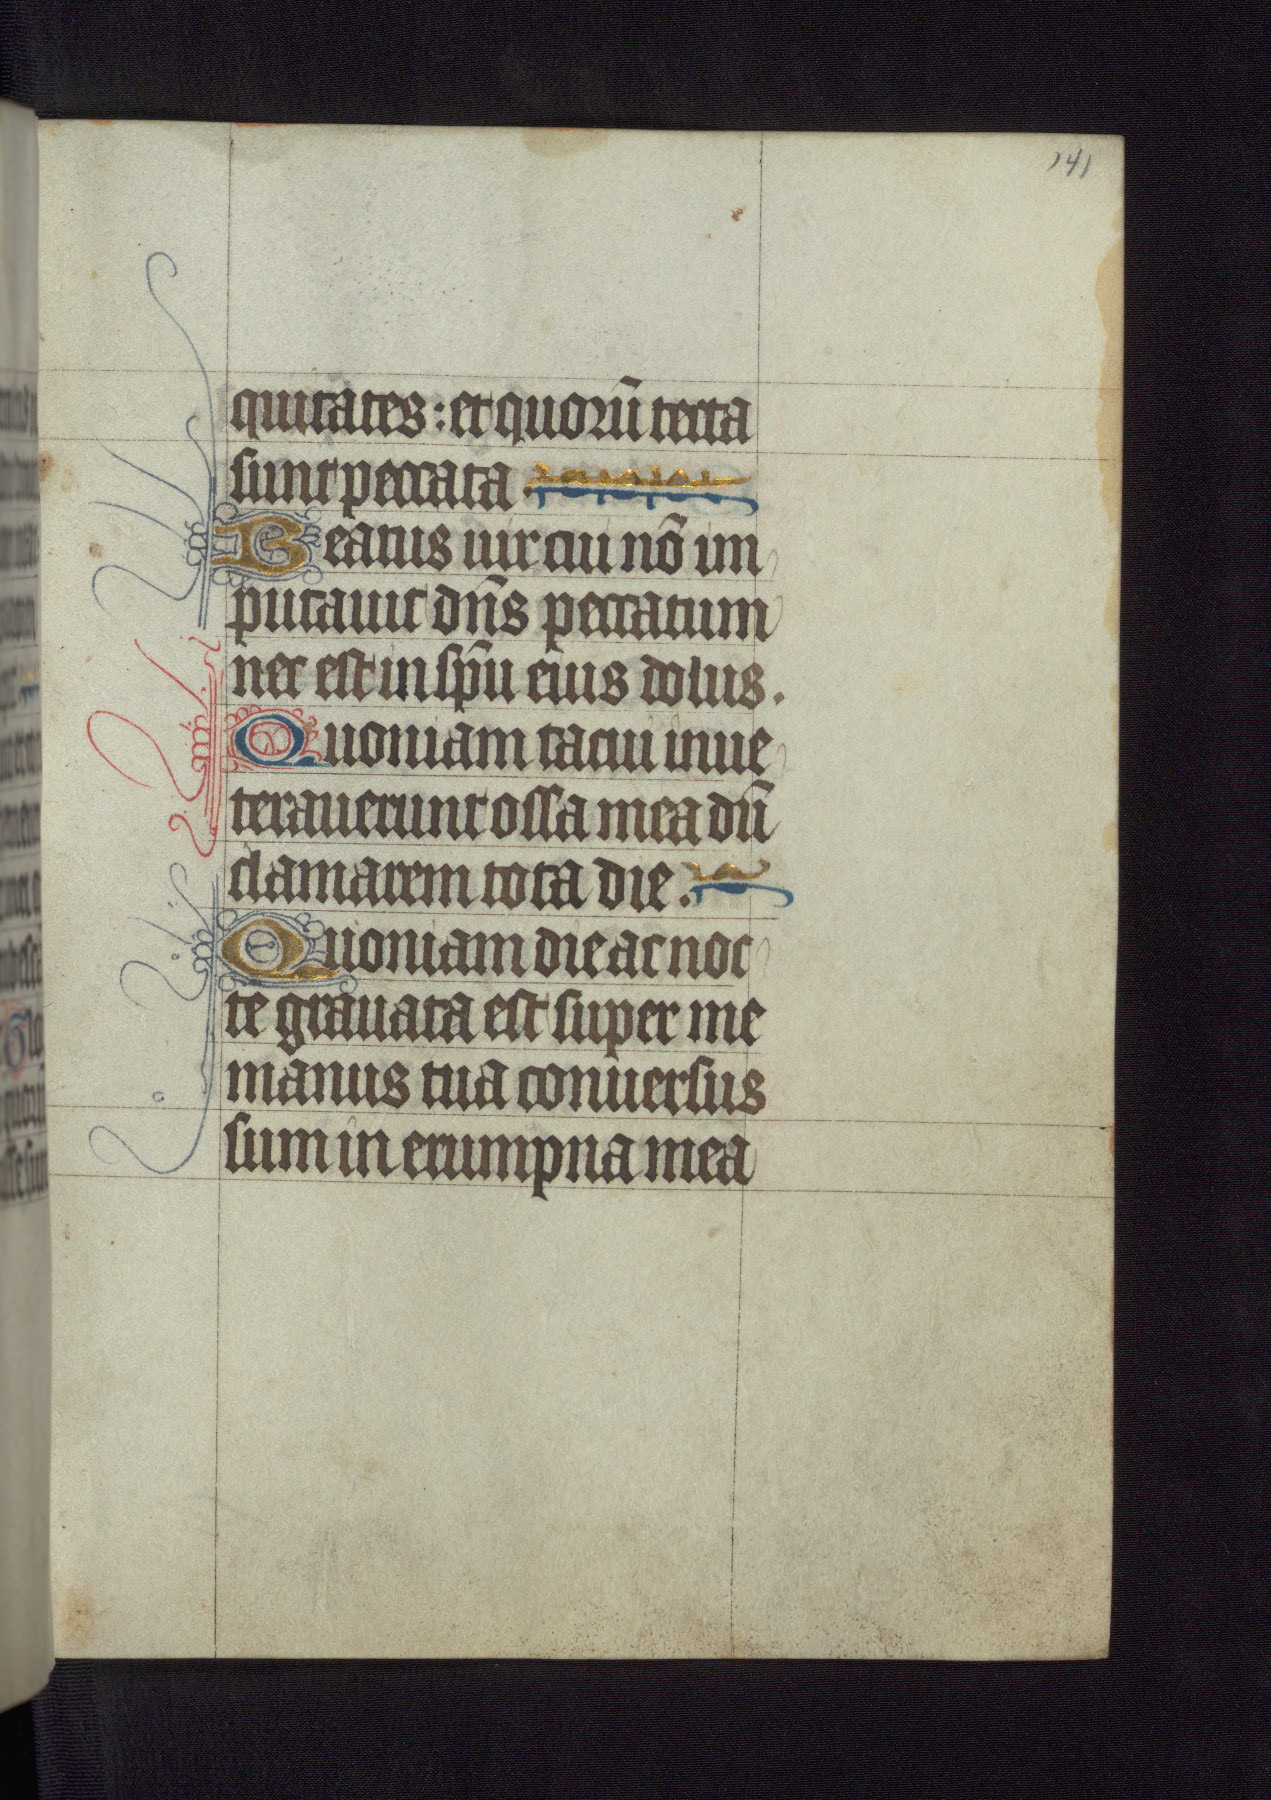 141
quitates : et quorū tecta
sunt peccata .
Beatus uir cui nō im
putauit dn̄s peccatum
nec est in sp̄u eius dolus .
Quoniam tacui inue
terauerunt ossa mea dū
clamarem tota die .
Quoniam die ac noc
te grauata est super me
manus tua conuersus
sum in erumpna mea